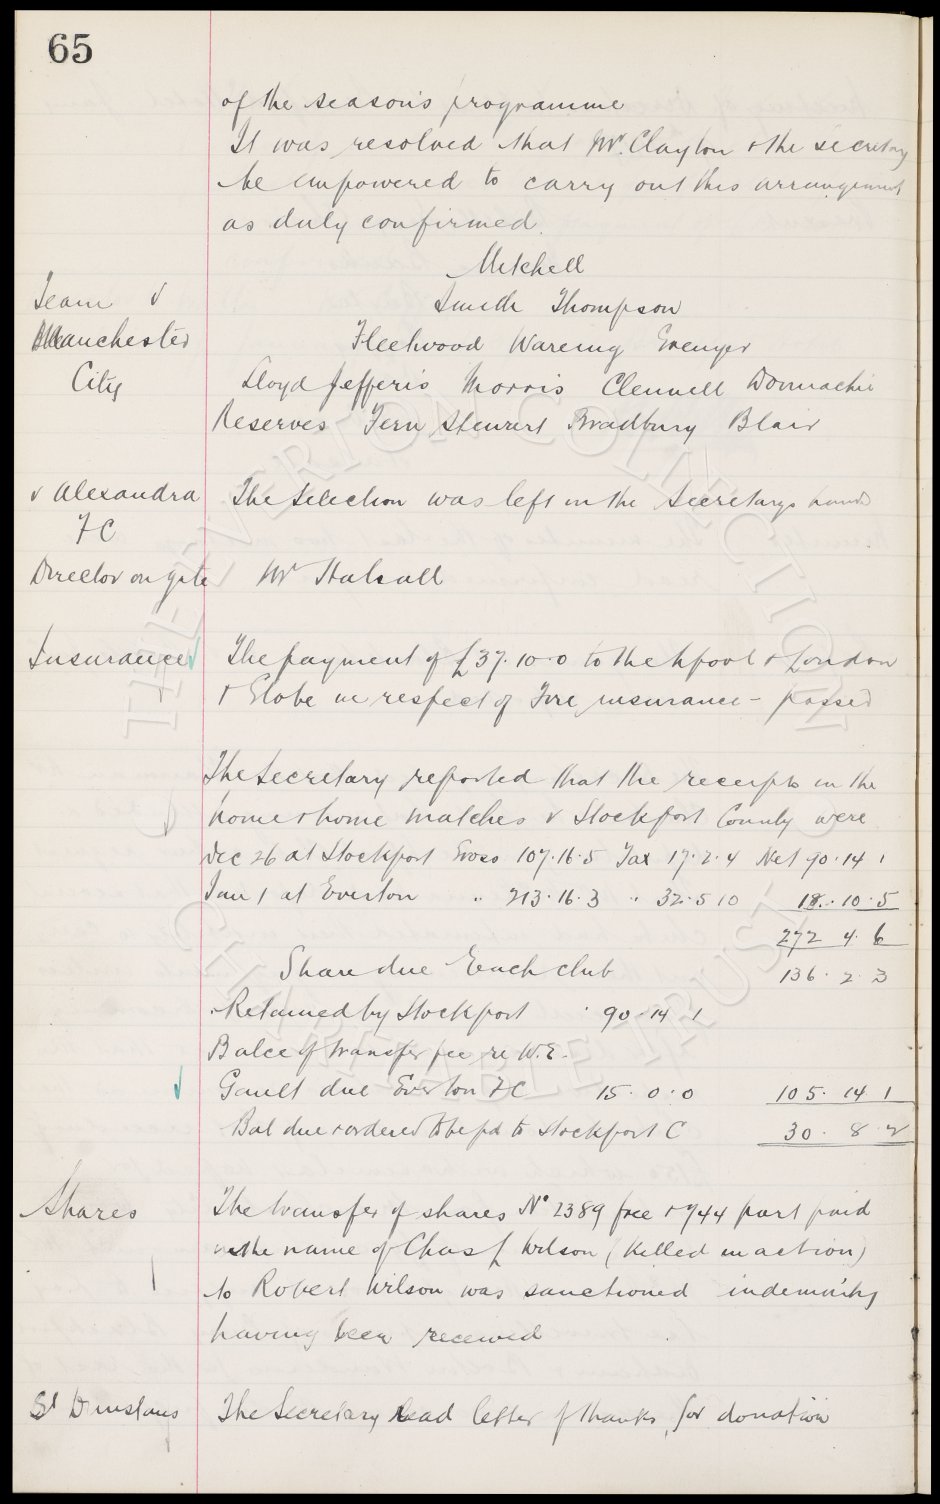 65
of the season's programme
It was resolved that Mr. Clayton & the Secretary
be empowered to carry out this arrangement
as duly confirmed.
Mitchell
Team v
Smith Thompson
Manchester
Fleetwood Wareing Grenyer
City
Lloyd Jefferis Morris Clennell Donnachie
Reserves Fern Stewart Bradbury Blair
v Alexandra
The selection was left in the Secretarys hands
FC
Director on gate
Mr Halsall
Insurance
The payment of £37.10.0 to the Lpool & London
& Globe in respect of Fire insurance - passed
The Secretary reported that the receipts in the
home & home matches v Stockport County were
Dec 26 at Stockport Gross 107.16.5 Tax 17.2.4 Net 90.14 1
Jan 1 at Everton " 213.16.3 " 32.5 10 18..10.5
272 4. 6
Share due Each club 136. 2. 3
Retained by Stockport 90.14 1
Balce of transfer fee re W.E.
Gault due Everton FC 15.0.0 105. 14 1
Bal due & ordered to be pd to Stockport C 30. 8. 2
Shares
The transfer of shares No 2389 free & 944 part paid
in the name of Chas J Wilson (Killed in action)
to Robert Wilson was sanctioned indemnity
having been received
St Dunstans
The Secretary read letter of thanks for donation
THE EVERTON COLLECTION
CHARITABLE TRUST